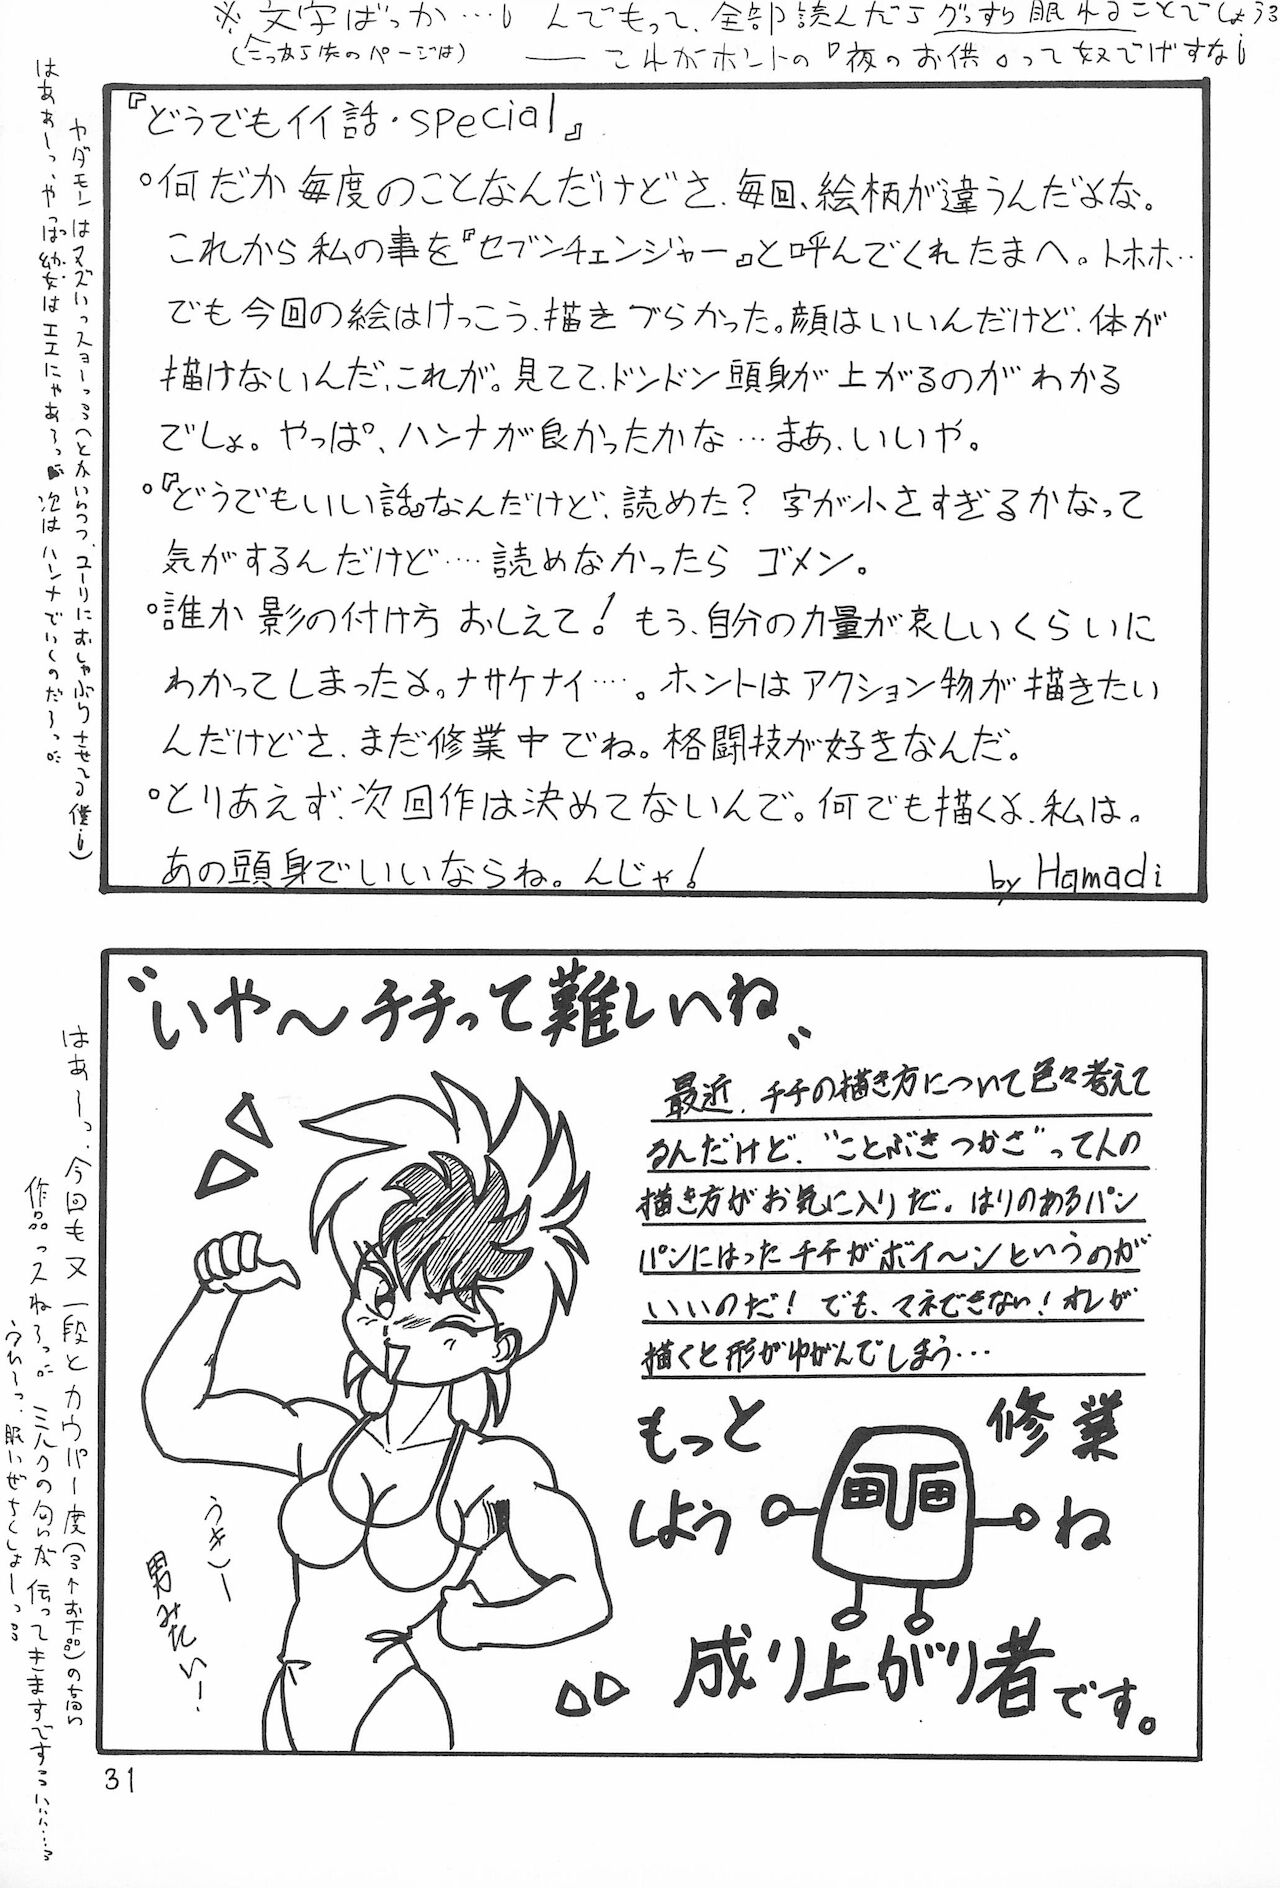 ※文字ばっか…！んでもって、全部読んだらグッすり眠れることでしょう
(こっから先のページは)
これがホントの『夜のお供』って奴でげすな！
『どうでもイイ話・special』
○何だか毎度のことなんだけどさ、毎回、絵柄が違うんだよな。
これから私の事を『セブンチェンジャー』と呼んでくれたまへ。トホホ‥
でも今回の絵はけっこう、描きづらかった。顔はいいんだけど、体が
描けないんだ、これが。見てて、ドンドン頭身が上がるのがわかる
でしょ。やっぱ、ハンナが良かったかな…まあ、いいや。
○『どうでもいい話』なんだけど、読めた？字が小さすぎるかなって
気がするんだけど‥‥読めなかったらゴメン。
○誰か影の付け方おしえて！もう、自分の力量が哀しいくらいに
わかってしまったよ。ナサケナイ‥‥。ホントはアクション物が描きたい
んだけどさ、まだ修業中でね。格闘技が好きなんだ。
○とりあえず、次回作は決めてないんで。何でも描くよ、私は。
あの頭身でいいならね。んじゃ！
by Hamadi
ヤダモンはマズいっスョーっ(とかいいつつ、ユーリにおしゃぶりさせてる僕！)
はあぁーっ、やっぱ幼女はエエにゃあ～っ 次はハンナでいくのだ～っ
〝いや～チチって難しいね〟
最近、チチの描き方について色々考えて
るんだけど、〝ことぶきつかさ〟って人の
描き方がお気に入りだ。はりのあるパン
パンにはったチチがボイ～ンというのが
いいのだ！でも、マネできない！オレが
描くと形がゆがんでしまう…
もっと修業
しようね
成り上がり者です。
うきー
男みたい！
はあ～っ、今回も又一段とカウパー度(お下品)の高い
作品っスねろっ 三人の匂いが伝ってきますです
うれーっ、眠いぜちくしょーっ
31